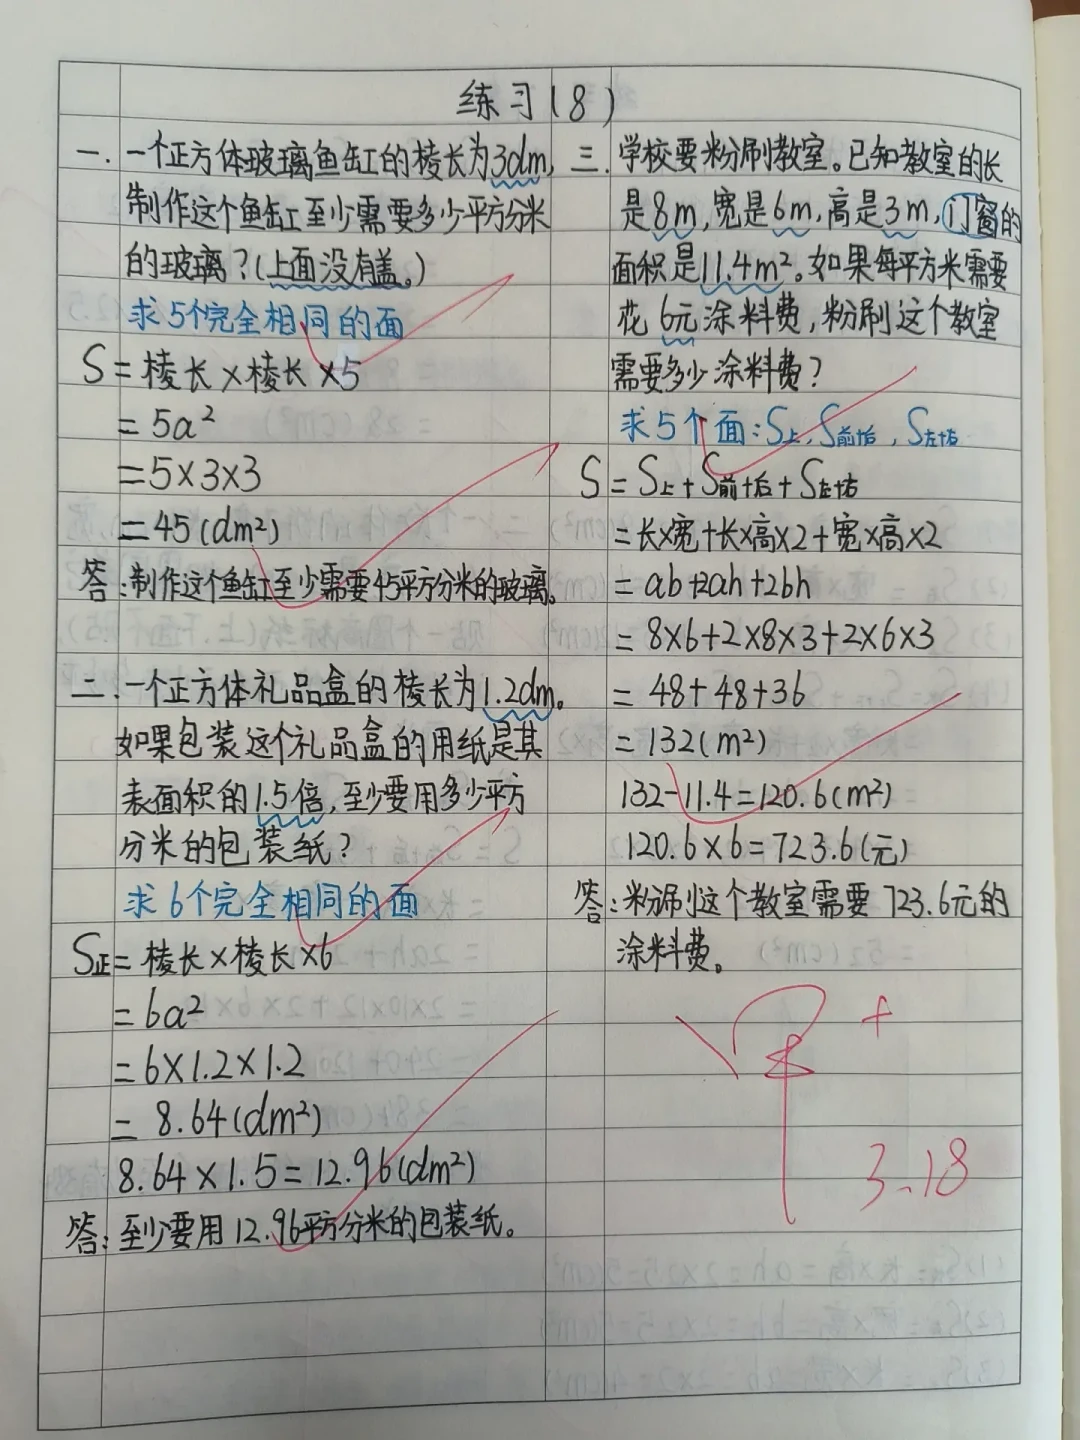 练习(8)
一.一个正方体玻璃鱼缸的棱长为3dm,
制作这个鱼缸至少需要多少平方分米
的玻璃?(上面没有盖。)
求5个完全相同的面
S=棱长×棱长×5
=5a²
=5×3×3
=45(dm²)
答:制作这个鱼缸至少需要45平方分米的玻璃。
二.一个正方体礼品盒的棱长为1.2dm。
如果包装这个礼品盒的用纸是其
表面积的1.5倍,至少要用多少平方
分米的包装纸?
求6个完全相同的面
S正=棱长×棱长×6
=6a²
=6×1.2×1.2
=8.64(dm²)
8.64×1.5=12.96(dm²)
答:至少要用12.96平方分米的包装纸。
三.学校要粉刷教室。已知教室的长
是8m,宽是6m,高是3m,门窗的
面积是11.4m²。如果每平方米需要
花6元涂料费,粉刷这个教室
需要多少涂料费?
求5个面:S上,S前+后,S左+右
S=S上+S前+后+S左+右
=长×宽+长×高×2+宽×高×2
=ab+2ah+2bh
=8×6+2×8×3+2×6×3
=48+48+36
=132(m²)
132-11.4=120.6(m²)
120.6×6=723.6(元)
答:粉刷这个教室需要723.6元的
涂料费。
3.18